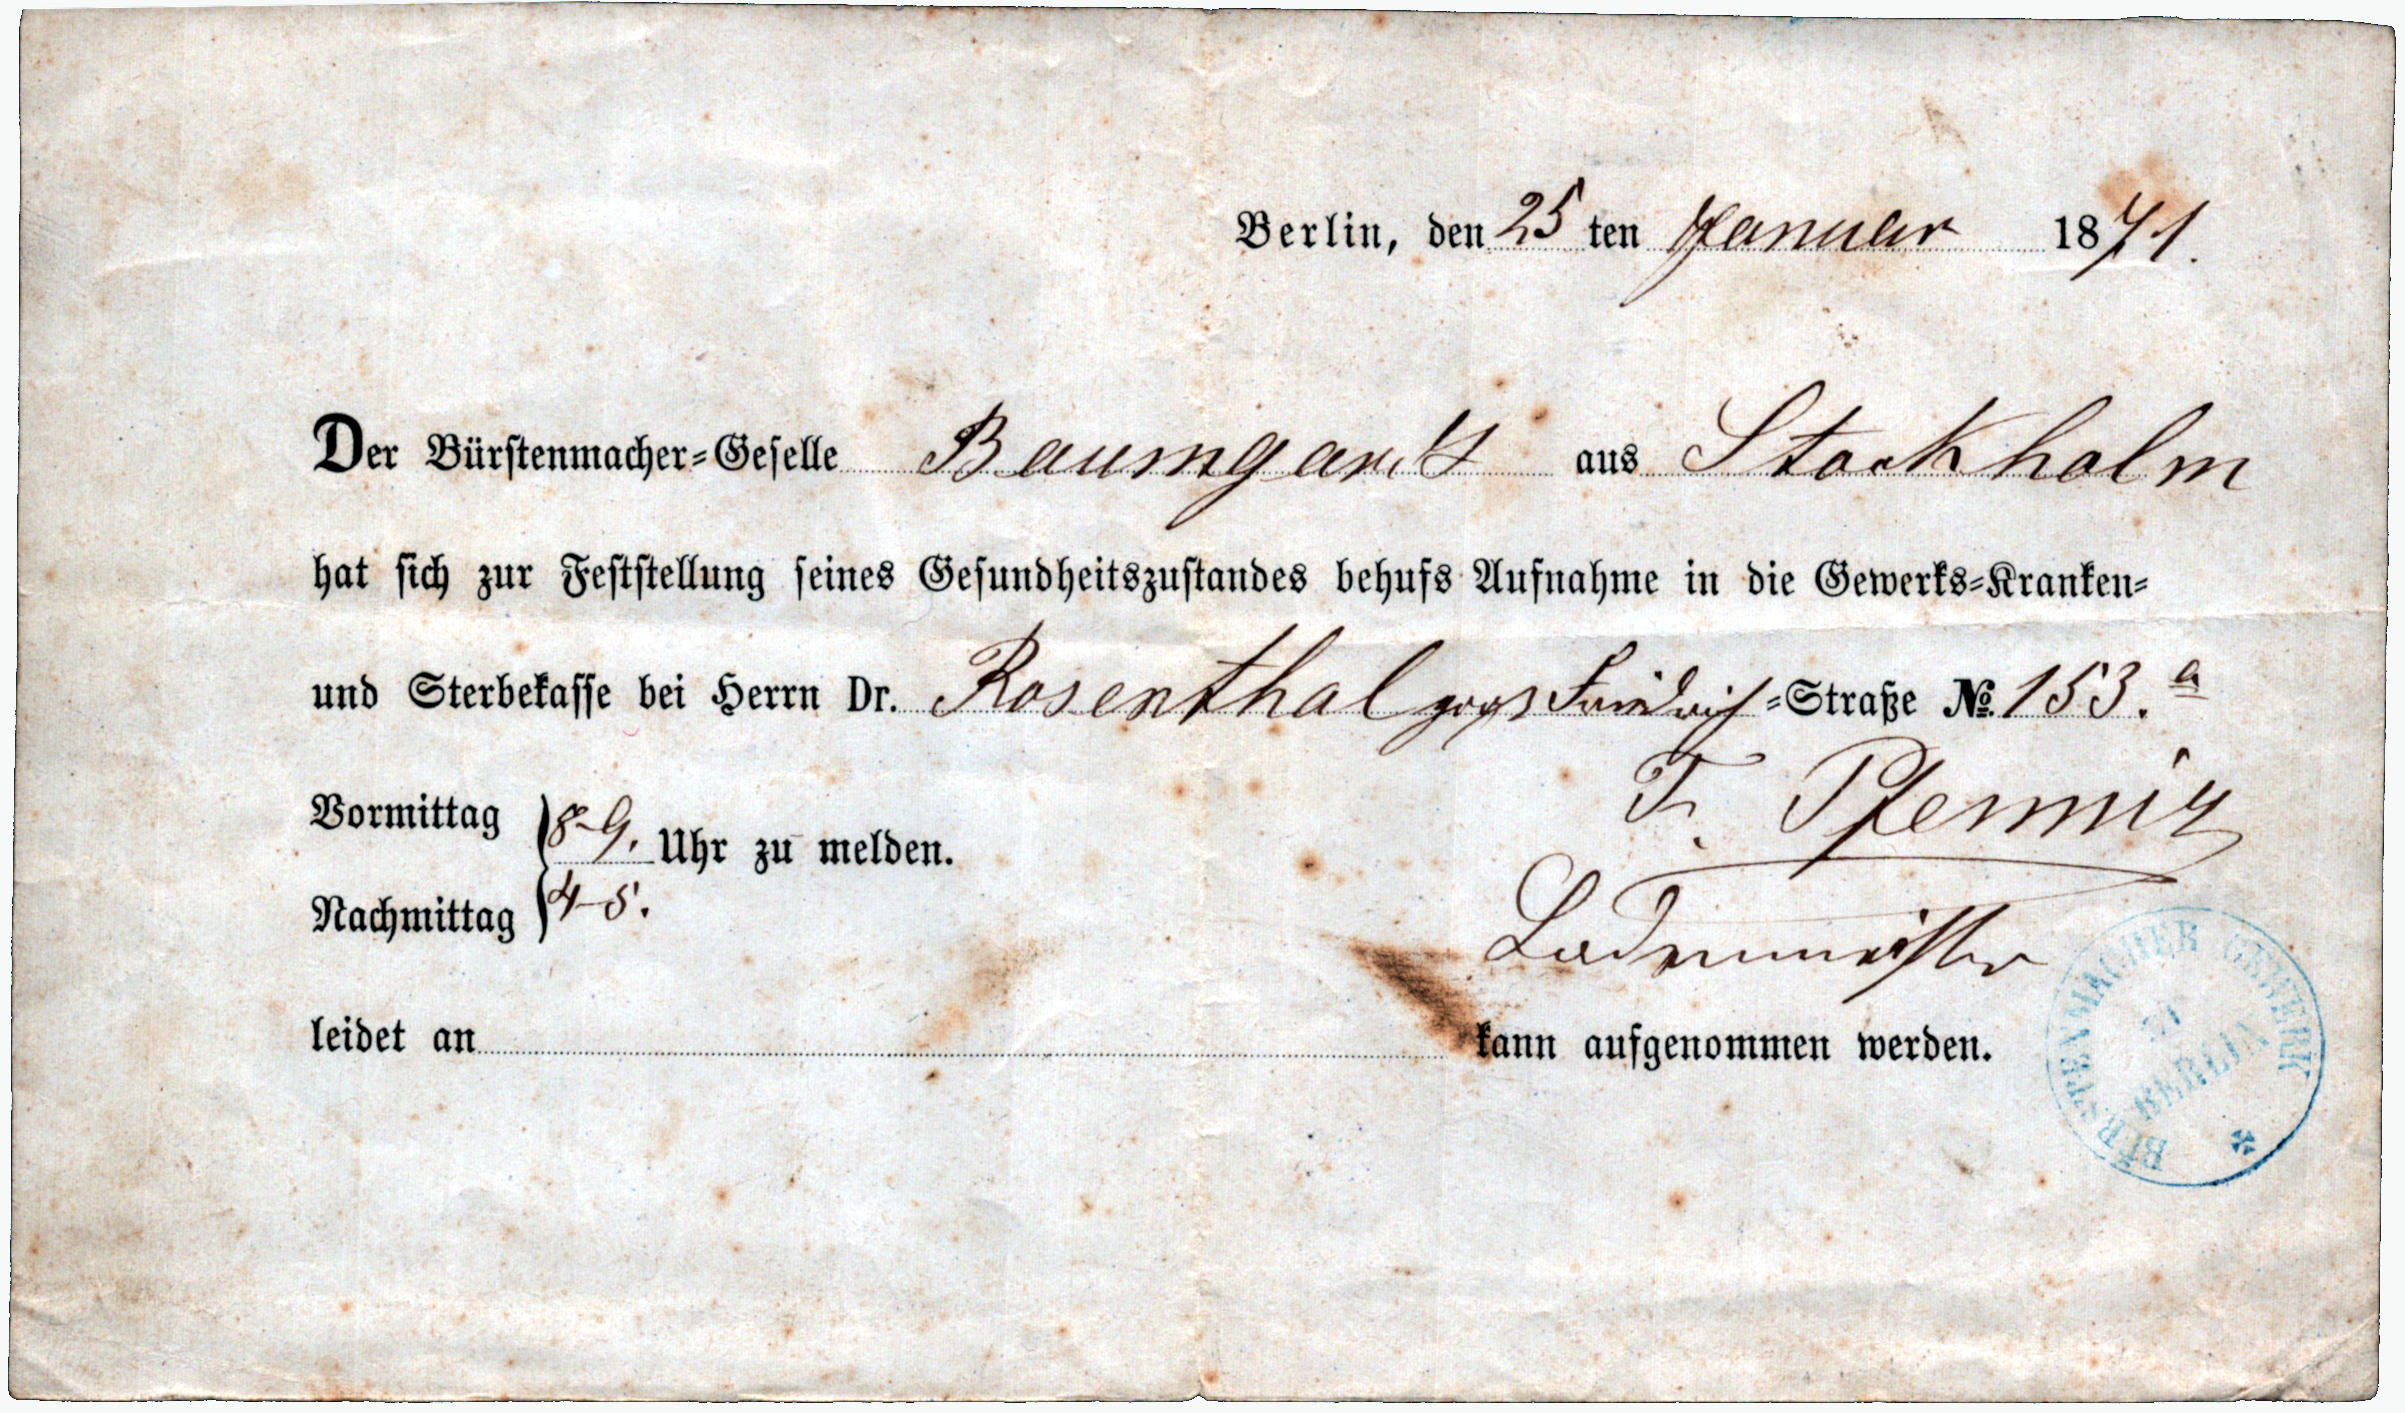 Berlin, den 25 ten Januar 1871.
Der Bürstenmacher-Geselle Baumgardt aus Stockholm
hat sich zur Feststellung seines Gesundheitszustandes behufs Aufnahme in die Gewerks-Kranken-
und Sterbekasse bei Herrn Dr. Rosenthal Friedrich-Straße No. 153.a
F. Pfennig
Vormittag 8-9.
Uhr zu melden.
Nachmittag 4-5.
Ladenmeister
leidet an kann aufgenommen werden.
BÜRSTENMACHER GEWERK
ZU
BERLIN